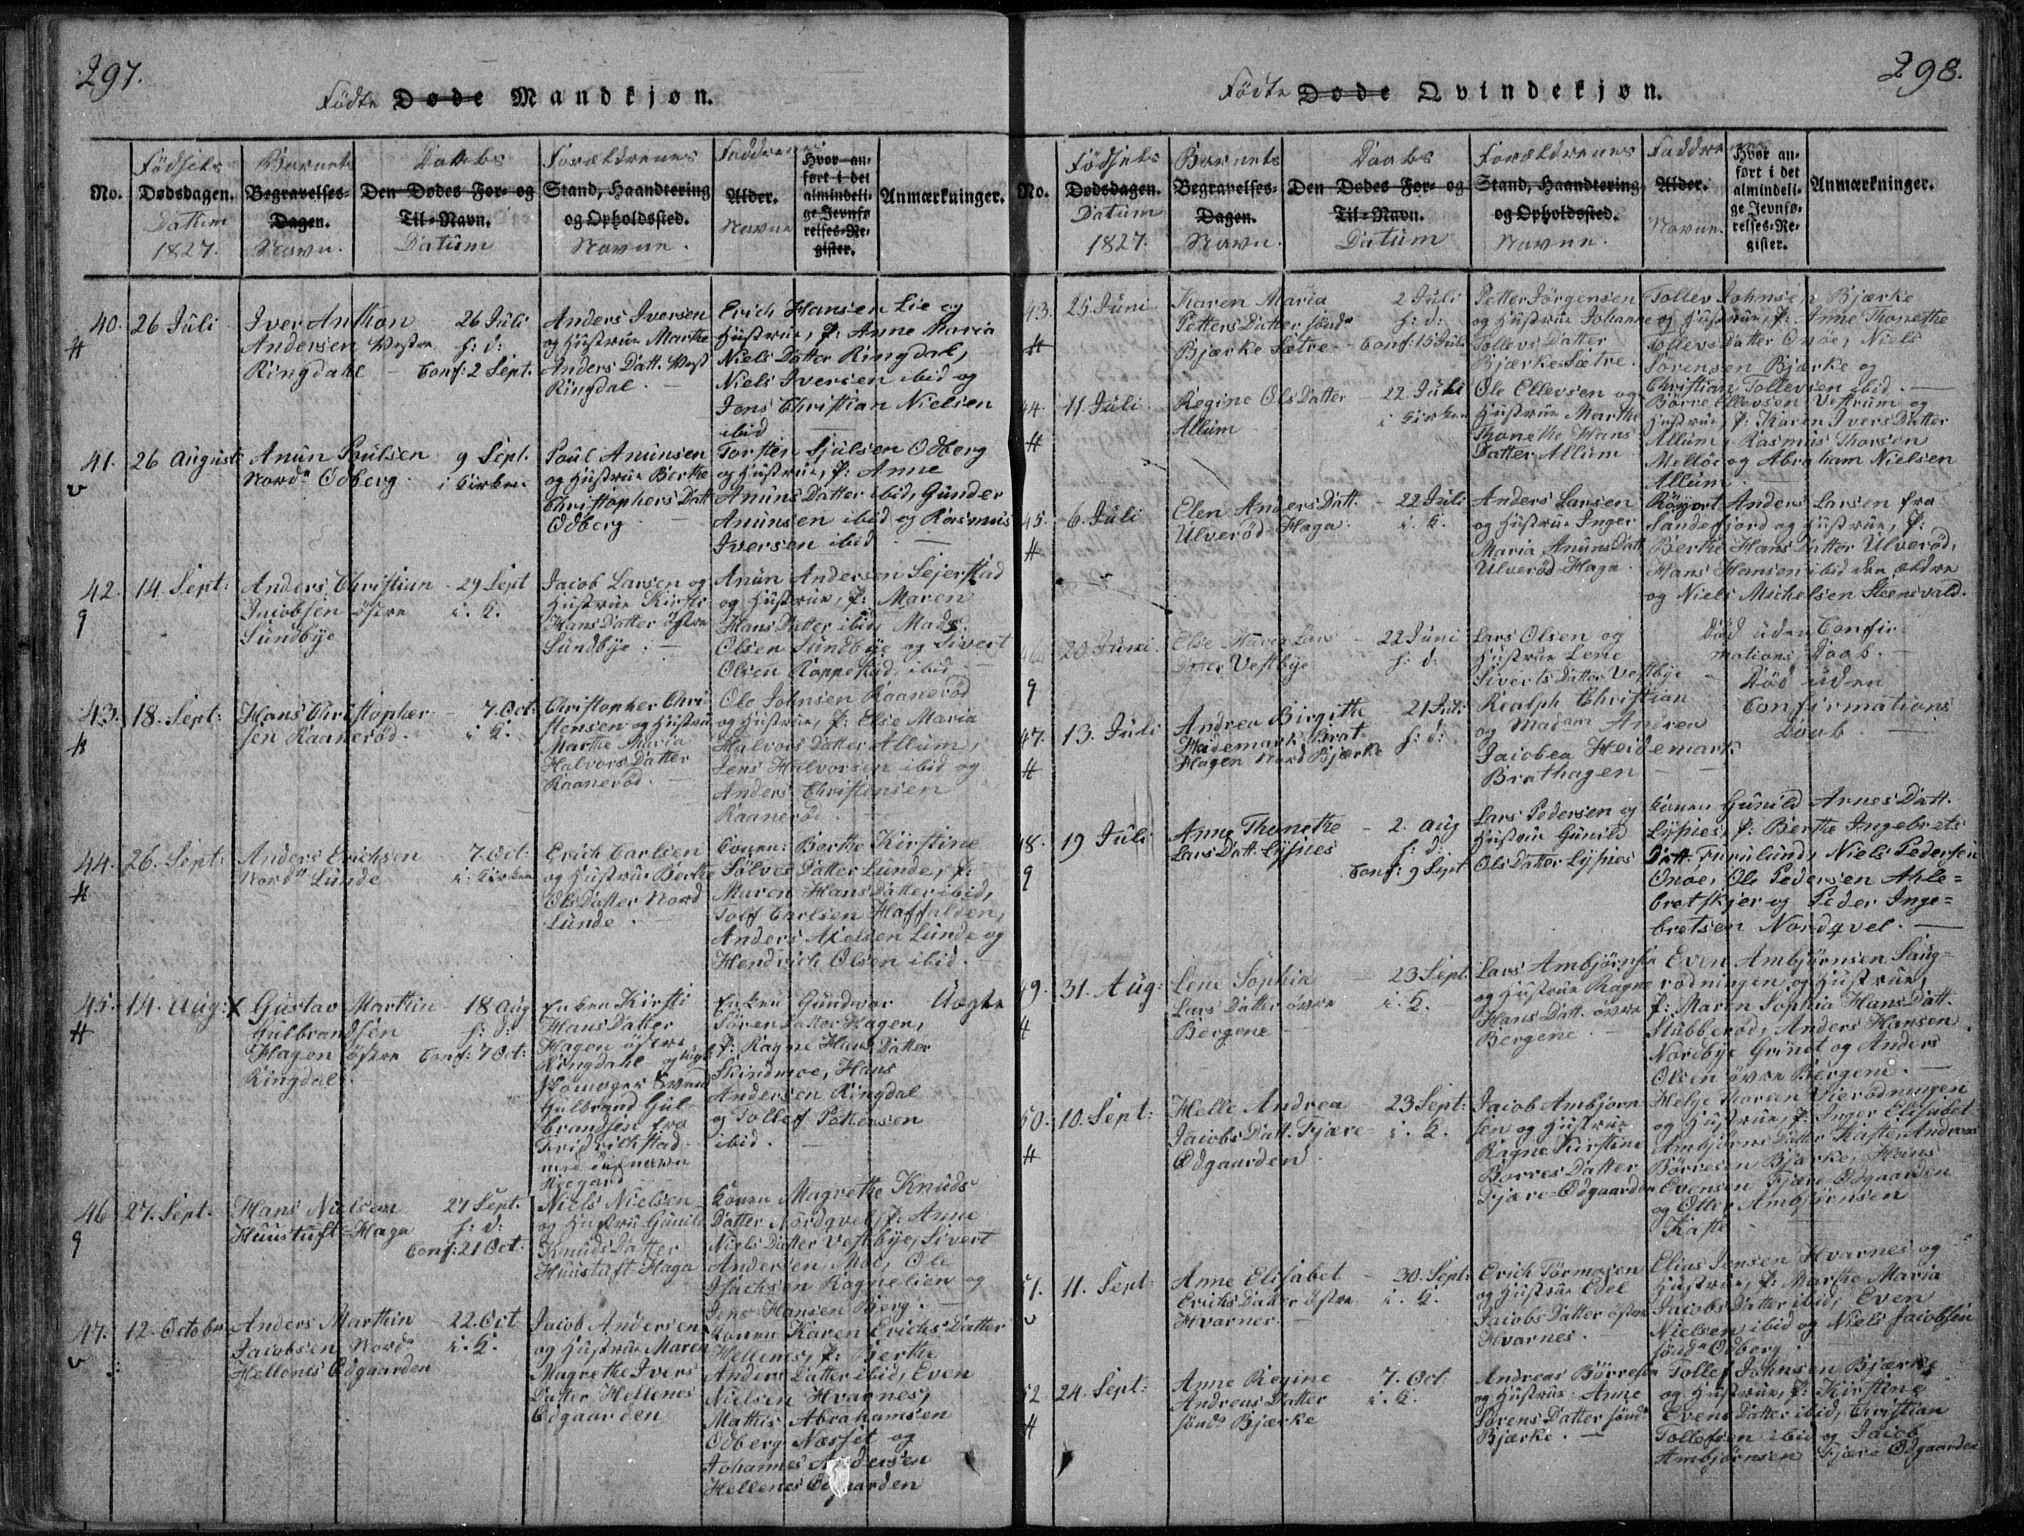 297.
Födte Døde Mandkjøn.
No.
Födsels
Dødsdagen.
Datum
1827.
Barnets
Begravelses-
Dagen.
Navn.
Daabs
Den Dødes For- og
Til-Navn.
Datum
Forældrenes
Stand, Haandtering
og Opholdssted.
Navne.
Faddrenes
Alder.
Navne
Hvor an-
ført i det
almindeli-
ge Jevnfø-
relses-Re-
gister.
Anmærkninger.
40.
26 Juli
Iver Anthon
Andersen Vestre
Ringdahl
26 Juli
h: d:
Conf: 2 Sept.
Anders Iversen
og Hustrue Marthe
Anders Datt. Vest
Ringdal.
Erich Hansen Lie og
Hustrue, P: Anne Maria
Niels Datter Ringdal,
Niels Iversen ibid og
Jens Christian Nielsen
ibid
41.
26 August
Anun Poulsen
Nord Odberg.
9 Sept.
i Kirken
Poul Anunsen
og Hustrue Berthe
Christophers Datt
Odberg
Torsten Sjulsen Odberg
og Hustrue, P: Anne
Anuns Datter ibid, Gunder
Anunsen ibid og Rasmus
Iversen ibid
42.
14. Sept:
Anders Christian
Jacobsen östre
Sundbye
29 Sept
i. K.
Jacob Larsen og
Hustrue Kirsti
Hans Datter östre
Sundbye.
Anun Andersen Sejerstad
og Hustrue, P: Maren
Hans Datter ibid, Mads
Olsen Sundbye og Sivert
Olsen Rappestad ibid
43.
18. Sept:
Hans Christopher-
sen Raaneröd.
7. Oct:
i. K.
Christopher Chri-
stensen og Hustrue
Marthe Maria
Halvors Datter
Raaneröd.
Ole Johnsen Raaneröd
og Hustrue, P: Else Maria
Halvors Datter Allum,
Jens Halvorsen ibid og
Anders Christensen
Raaneröd.
44.
26. Sept:
Anders Erichsen
Nord Lunde
7. Oct:
i. Kirken
Erich Carlsen
og Hustrue Berthe
Ols Datter Nord
Lunde.
Konen Berthe Kirstine
Sölves Datter Lunde, P:
Maren Hans Datter ibid,
Tolf Carlsen Haffalden,
Anders Axelsen Lunde og
Hendrich Olsen ibid.
45.
14. Aug: X
Gustav Marthin
Gulbrandsen
Hagen östre
Ringdal.
18 Aug
h: d:
Conf: 7 Oct:
Enken Kirsti
Hans Datter
Hagen östre
Ringdahl og
Gulbrand Gul-
brandsen fra
Fridrichstad
med
Enken Gundvor
Sören Datter Hagen,
P: Ragne Hans Datter
Skindmoe, Hans
Andersen Ringdal
og Tollef Pettersen
ibid.
Uægte
46
27. Sept.
Hans Nielsen
Huustuft-Haga
27 Sept.
h: d:
Conf: 21 Oct.
Niels Nielsen
og Hustrue Gunild
Knuds Datter
Huustuft Haga
Konen Magrethe Knuds
Datter Nordqvel, P: Anne
Niels Datter Vestbye, Sivert
Andersen Moe, Ole
Isachsen Ragnelien og
Jens Hansen Berg.
47.
12. October
Anders Marthin
Jacobsen Nord
Hellenes Ödgaarden
22. Oct
i. K.
Jacob Andersen
og Hustrue Maren
Magrethe Ivers
Datter Hellenes
Ödgaarden
Konen Karen Erichs Datter
Hellenes, P: Berthe
Anders Datter ibid, Even
Nielsen Hvarnes,
Mathis Abrahamsen
Odberg Næsset og
Johannes Andersen
Hellenes Ödgaarden
298.
Födte Døde Qvindekjøn.
No.
Födsels
Dødsdagen.
Datum
1827.
Barnets
Begravelses-
Dagen.
Navn.
Daabs
Den Dødes For- og
Til-Navn.
Datum
Forældrenes
Stand, Haandtering
og Opholdssted.
Navne.
Faddrenes
Alder.
Navne.
Hvor an-
ført i det
almindeli-
ge Jevnfø-
relses-Re-
gister.
Anmærkninger.
43.
25. Juni
Karen Maria
Petters Datter sönd
Bjærke Sætre
2 Juli
h: d:
Conf: 15 Juli
Petter Jörgensen
og Hustrue Johanne
Tollevs Datter
Bjærke-Sætre.
Tollev Johnsen Bjærke
og Hustrue, P: Anne Thonethe
Tollevs Datter Onöe, Niels
Sörensen Bjærke og
Christian Tollevsen ibid.
44.
11. Juli
Regine Ols Datter
Allum
22 Juli
i Kirken
Ole Ellevsen og
Hustrue Marthe
Thonethe Hans
Datter Allum
Börre Ellevsen Vestrum og
Hustrue, P: Karen Ivers Datter
Allum, Rasmus Thorsen
Mellöe og Abraham Nielsen
Allum.
45.
6. Juli
Elen Anders Datt.
Ulveröd-Haga.
22 Juli
i. K.
Anders Larsen
og Hustrue Inger
Maria Anuns Datt
Ulveröd-Haga.
Röyert Anders Larsen fra
Sandefjord og Hustrue, P:
Berthe Hans Datter Ulveröd,
Hans Hansen ibid den ældre
og Niels Michelsen Steensvald.
46.
20. Juni
Else Maria Lars
Datter Vestbye
22 Juni
h: d:
Lars Olsen og
Hustrue Lene
Siverts Datter Vestbye
Död uden Confir-
mations Daab.
47.
13. Juli
Andrea Birgithe
Hademark Brat-
hagen Nord Bjærke
21 Juli
h: d:
Realph Christian
og Madam Andrea
Jacobea Heidemark
Brathagen
Död uden
Confirmations
Daab.
48.
19 Juli
Anne Thonethe
Lars Datt. Lysnes
2. Aug
h. d.
Conf: 9 Sept
Lars Pedersen og
Hustrue Gunild
Ols Datter Lysnes
Konen Gunild Arnes Datt.
Lysnes, P: Berthe Ingebrets
Datt. Furulund, Niels Pedersen
Onöe, Ole Pedersen Ahle-
bretskjer og Peder Inge-
bretsen Nordqvel.
49.
31. Aug:
Lene Sophia
Lars Datter övre
Bergene
23 Sept.
i. K.
Lars Ambjörnsen
og Hustrue Ragne
Hans Datt. övre
Bergene
Even Ambjörnsen Saug-
rödningen og Hustrue,
P: Maren Sophia Hans Datt.
Stubberöd, Anders Hansen
Nordbye Grünet og Anders
Olsen övre Bergene.
50.
10. Sept:
Helle Andrea
Jacobs Datt. Fjære
Ödgaarden
23 Sept:
i. K.
Jacob Ambjörn-
sen og Hustrue
Ragne Kirstine
Börres Datter
Fjære-Ödgaarden
Helje Larsen Sierödningen
og Hustrue, P: Inger Elisabet
Ambjörns Datter Kaste, Andreas
Börresen Bjærke, Hans
Evensen Fjære Ödgaarden
og Otter Ambjörnsen
Kaste
51.
11. Sept:
Anne Elisabet
Erichs Datter östre
Hvarnes
30. Sept:
i. K.
Erich Tormosen
og Hustrue Edel
Jacobs Datter östre
Hvarnes.
Elias Jensen Hvarnes og
Hustrue, P: Marthe Maria
Jacobs Datter ibid, Even
Nielsen ibid og Niels Jacobsen
sönd Odberg
52.
24. Sept:
Anne Regine
Andreas Datter
sönd Bjærke
7. Oct
i. K.
Andreas Börresen
og Hustrue Anne
Sörens Datter sönd
Bjærke.
Tollef Johnsen Bjærke
og Hustrue, P: Kirstine
Evens Datter ibid, Christian
Tollefsen ibid og Jacob
Ambjörnsen Fjære Ödgaarden